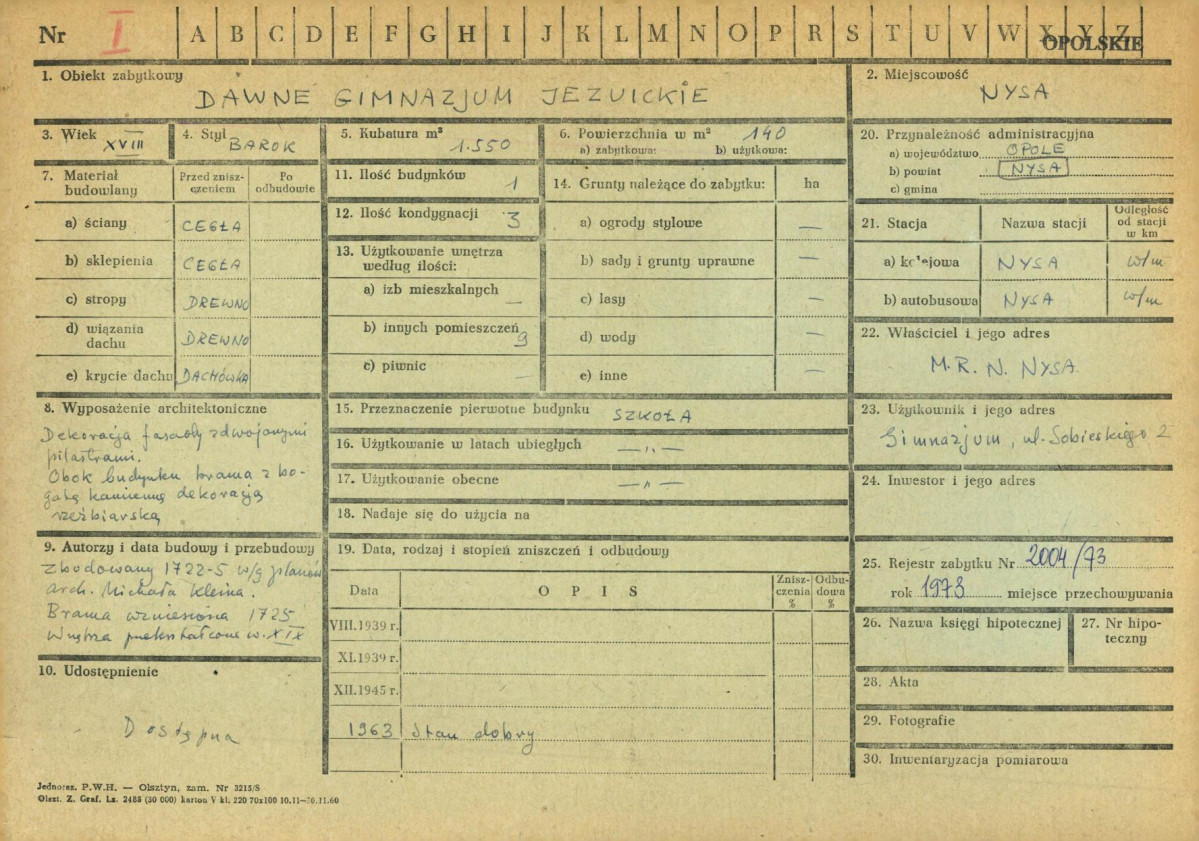 Nr I A B C D E F G H I J K L M N O P R S T U V W X Y Z
OPOLSKIE
1. Obiekt zabytkowy
DAWNE GIMNAZJUM JEZUICKIE
2. Miejscowość
NYSA
3. Wiek XVIII
4. Styl BAROK
5. Kubatura m³ 1.550
6. Powierzchnia w m² 140
a) zabytkowa: b) użytkowa:
20. Przynależność administracyjna
a) województwo OPOLE
b) powiat NYSA
c) gmina
7. Materiał budowlany
Przed zniszczeniem
Po odbudowie
a) ściany CEGŁA
b) sklepienia CEGŁA
c) stropy DREWNO
d) wiązania dachu DREWNO
e) krycie dachu DACHÓWKA
11. Ilość budynków 1
12. Ilość kondygnacji 3
13. Użytkowanie wnętrza
według ilości:
a) izb mieszkalnych —
b) innych pomieszczeń 9
c) piwnic —
14. Grunty należące do zabytku: ha
a) ogrody stylowe —
b) sady i grunty uprawne —
c) lasy —
d) wody —
e) inne
21. Stacja Nazwa stacji Odległość od stacji w km
a) kolejowa NYSA w/m
b) autobusowa NYSA w/m
22. Właściciel i jego adres
M.R.N. NYSA
8. Wyposażenie architektoniczne
Dekoracja fasady zdwojonymi
pilastrami.
Obok budynku brama z bo-
gatą kamienną dekoracją
rzeźbiarską
15. Przeznaczenie pierwotne budynku SZKOŁA
16. Użytkowanie w latach ubiegłych — „ —
17. Użytkowanie obecne — „ —
18. Nadaje się do użycia na
23. Użytkownik i jego adres
Gimnazjum, ul. Sobieskiego 2
24. Inwestor i jego adres
9. Autorzy i data budowy i przebudowy
Zbudowany 1722-5 w/g planów
arch. Michała Kleina.
Brama wzniesiona 1725
Wnętrza przekształcone w. XIX
19. Data, rodzaj i stopień zniszczeń i odbudowy
Data OPIS Zniszczenia % Odbudowa %
VIII.1939 r.
XI.1939 r.
XII.1945 r.
1963 Stan dobry
25. Rejestr zabytku Nr 2004/73
rok 1973 miejsce przechowywania
26. Nazwa księgi hipotecznej
27. Nr hipo-
teczny
10. Udostępnienie
Dostępna
28. Akta
29. Fotografie
30. Inwentaryzacja pomiarowa
Jednoraz. P.W.H. — Olsztyn, zam. Nr 3215/S
Olszt. Z. Graf. Lz. 2485 (30 000) karton V kl. 220 70x100 10.11—30.11.60